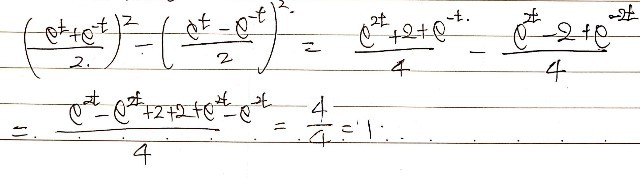 (e^t+e^-t/2.)^2 - (e^t-e^-t/2)^2. = e^2t+2+e^-t./4 - e^2t-2+e^-2t/4
=. e^2t-e^2t+2+2+e^2t-e^-2t/4 = 4/4 = 1.